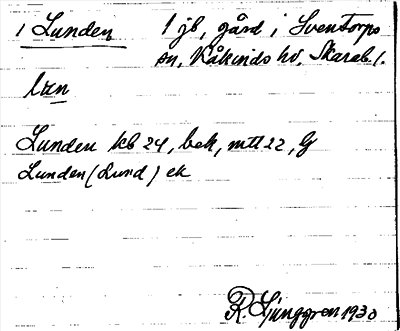 1 Lunden 1 jb, gård i Sventorps
sn, Kåkinds hd, Skarab. l.
Lunden kb 24, bek, mtl 22, G
Lunden (Lund) ek
R. Ljunggren 1930